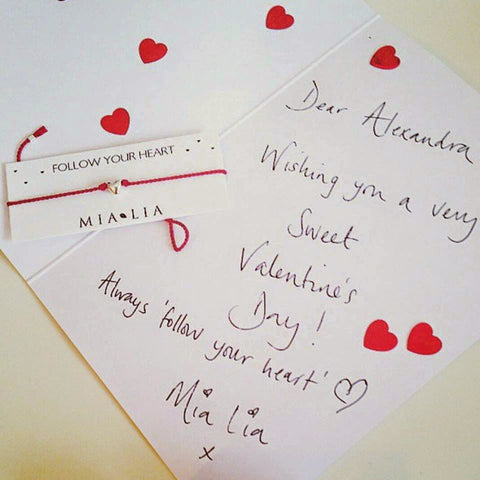 FOLLOW YOUR HEART
MIA LIA
Dear Alexandra
Wishing you a very
Sweet
Valentine's
Day!
Always 'follow
your heart' ♡
Mia Lia
x